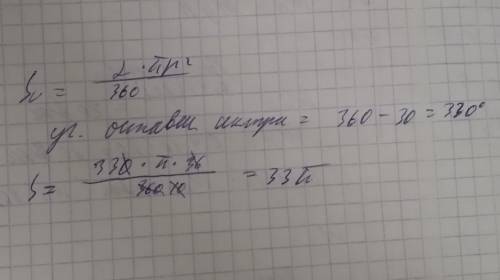 S = α · πr² / 360
уг. оставш сектра = 360 - 30 = 330°
S = 330 · π · 36 / 360 10 = 33π